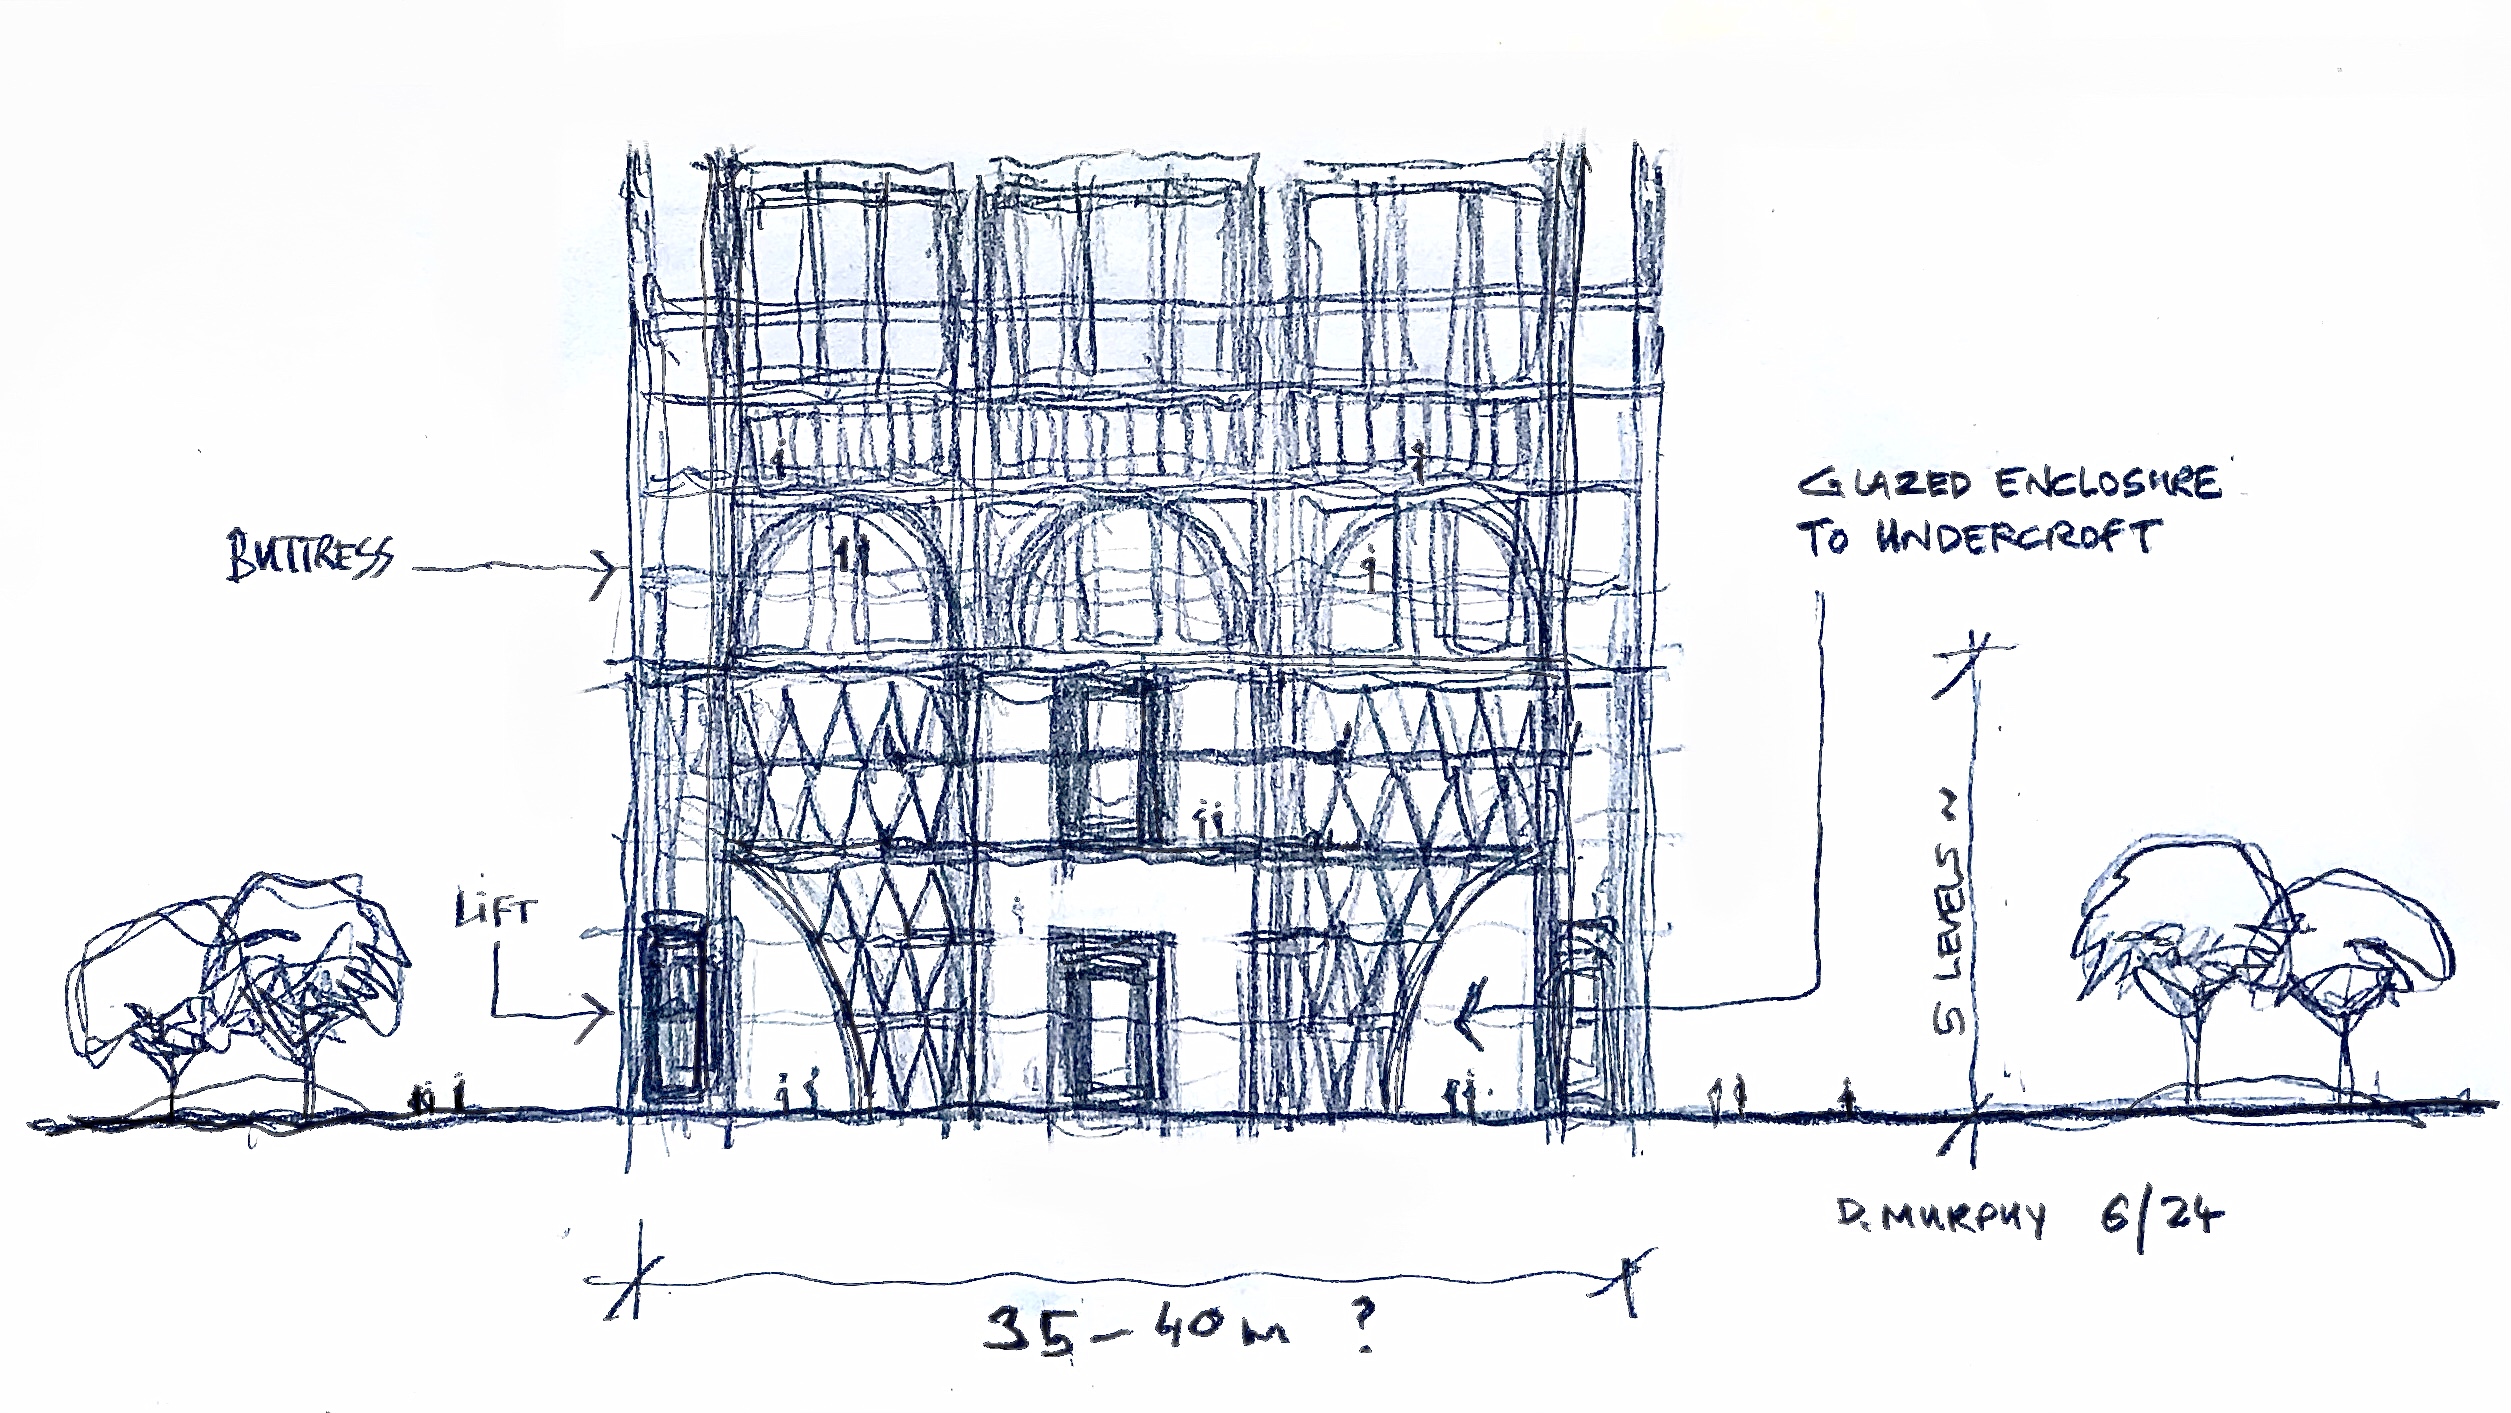 GLAZED ENCLOSURE
TO UNDERCROFT
BUTTRESS
LIFT
5 LEVELS ~
D. MURPHY 6/24
35-40m ?